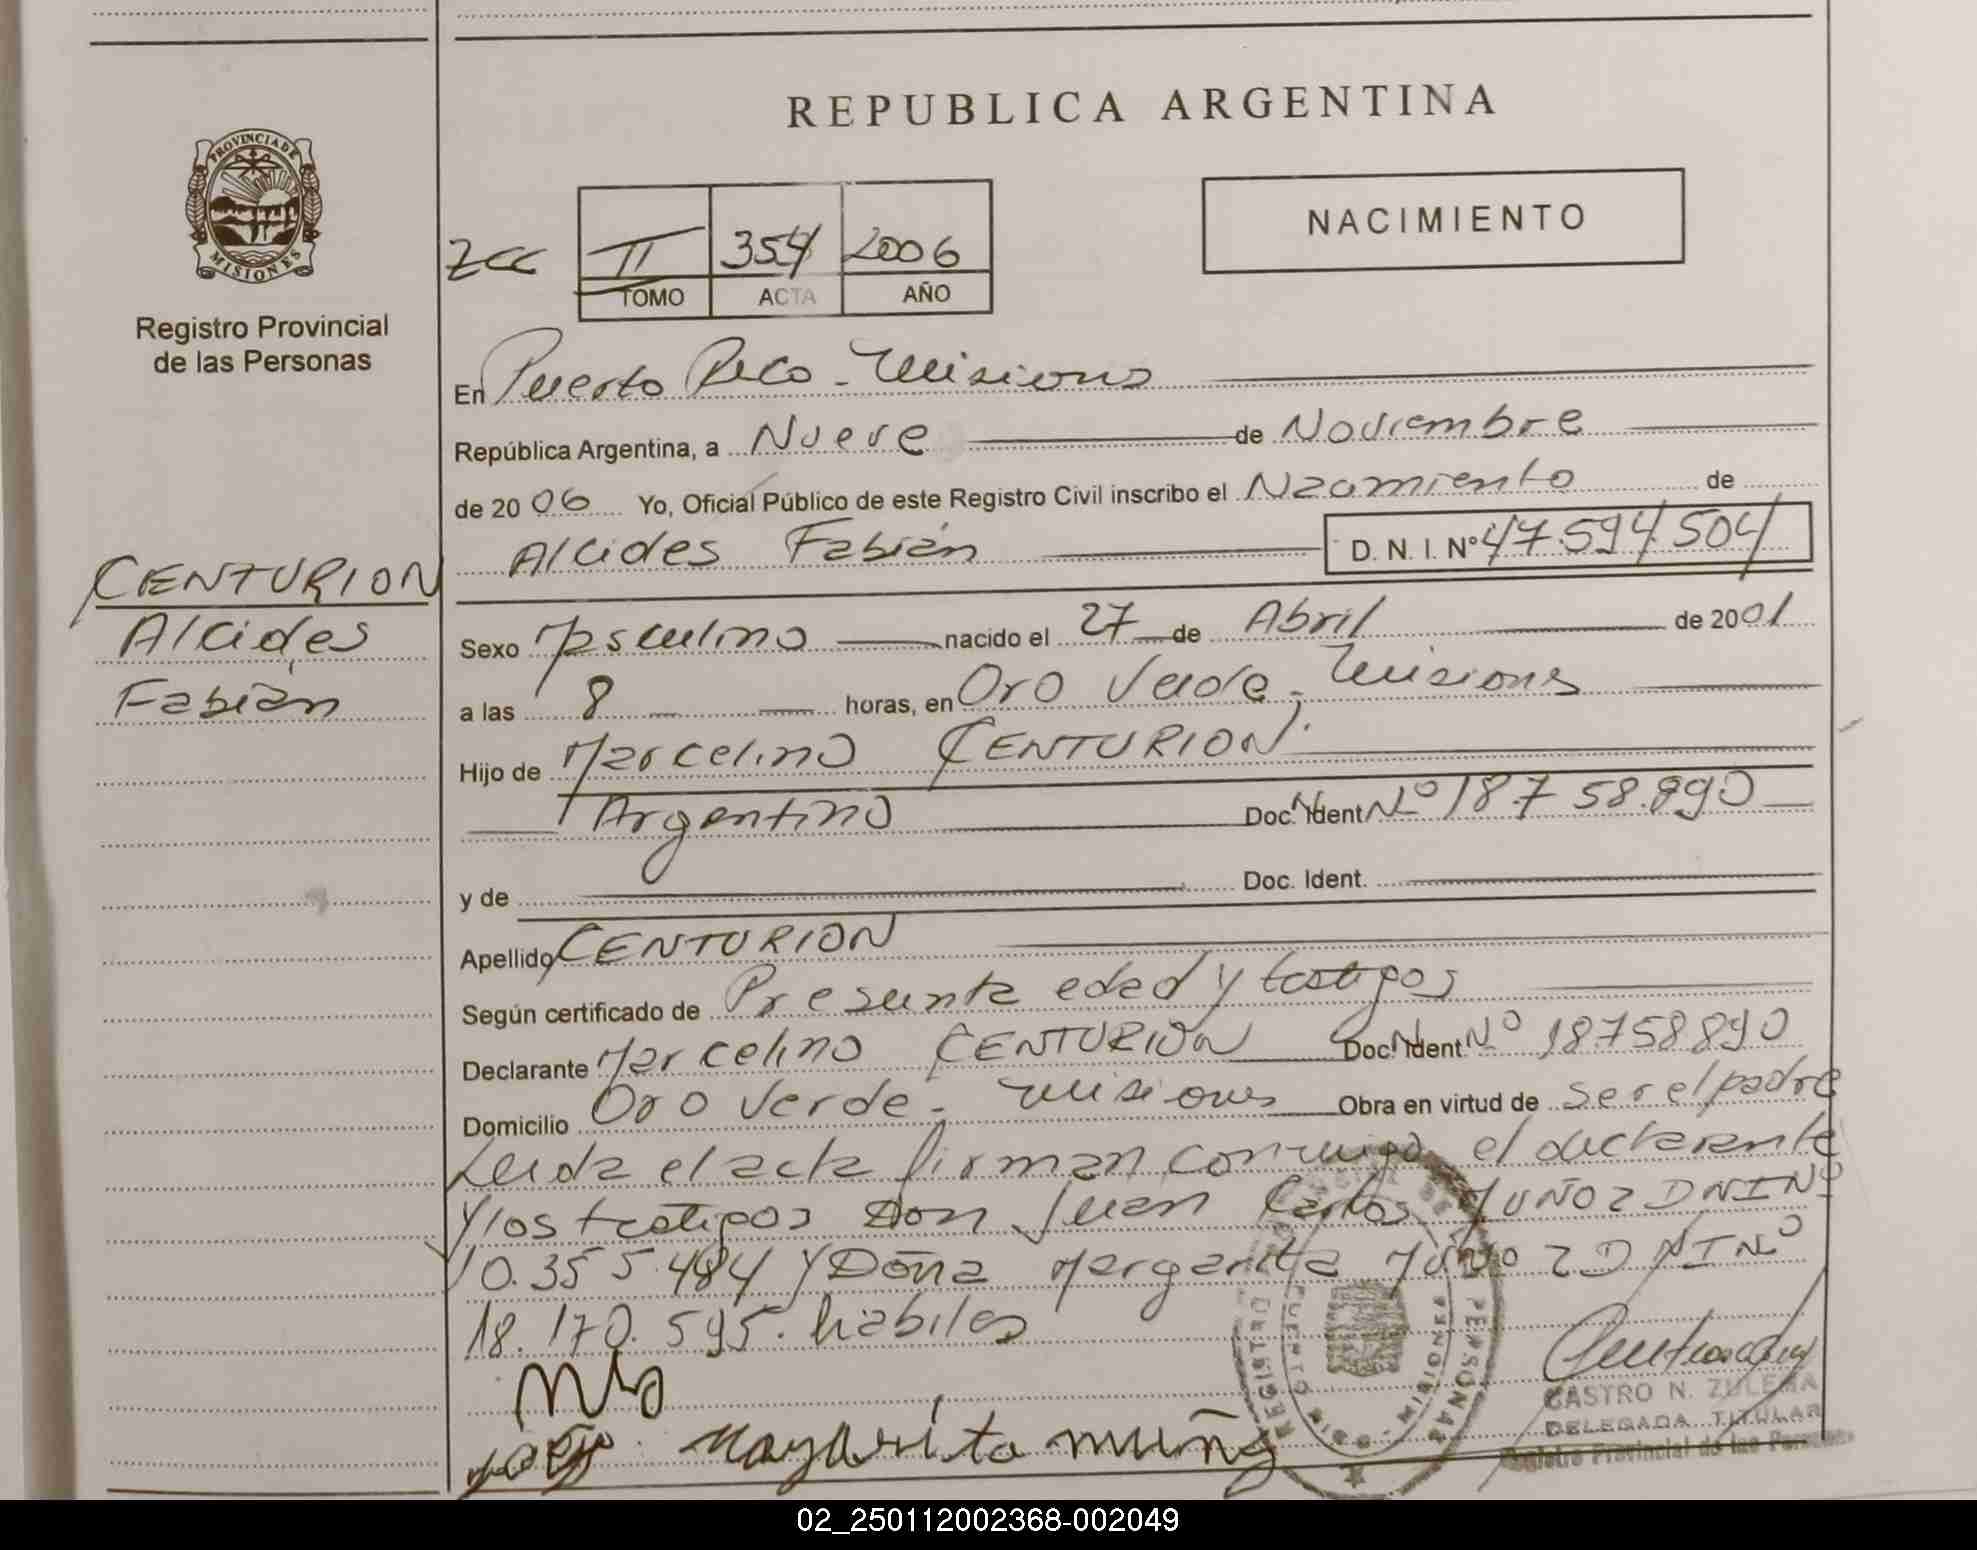 REPUBLICA ARGENTINA
PROVINCIA DE
MISIONES
Registro Provincial
de las Personas
NACIMIENTO
II 354 2006
TOMO ACTA AÑO
En Puerto Rico - Misiones
República Argentina, a Nueve de Noviembre
de 2006 Yo, Oficial Público de este Registro Civil inscribo el Nacimiento de
Alcides Fabián D. N. I. Nº 47.594.504
CENTURION
Alcides
Fabián
Sexo Masculino nacido el 27 de Abril de 2001
a las 8 horas, en Oro Verde - Misiones
Hijo de Marcelino CENTURION
Argentino Doc. Ident Nº 18.758.890
y de Doc. Ident.
Apellido CENTURION
Según certificado de Presunta edad y testigos
Declarante Marcelino CENTURION Doc. Ident Nº 18758890
Domicilio Oro Verde - Misiones Obra en virtud de ser el padre
Leida el acta firman conmigo el declarante
y los testigos Don Juan Carlos MUÑOZ DNI Nº
10.355.484 y Doña Margarita MUÑOZ DNI Nº
18.170.595. habiles
Margarita muñoz
CASTRO N. ZULEMA
DELEGADA TITULAR
Registro Provincial de las Personas
02_250112002368-002049